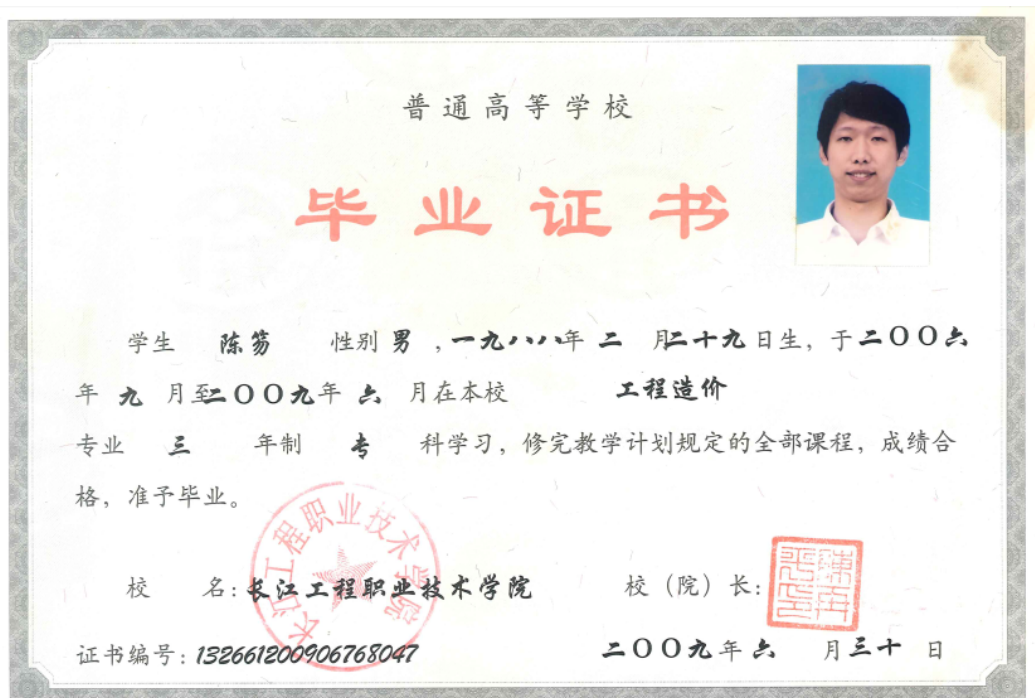 普通高等学校
毕业证书
学生 陈笏 性别 男 ,一九八八年 二 月二十九日生，于二〇〇六
年 九 月至二〇〇九年 六 月在本校 工程造价
专业 三 年制 专 科学习，修完教学计划规定的全部课程，成绩合
格，准予毕业。
长江工程职业技术学院
校 名：长江工程职业技术学院 校（院）长：
证书编号：132661200906768047 二〇〇九年六 月三十 日